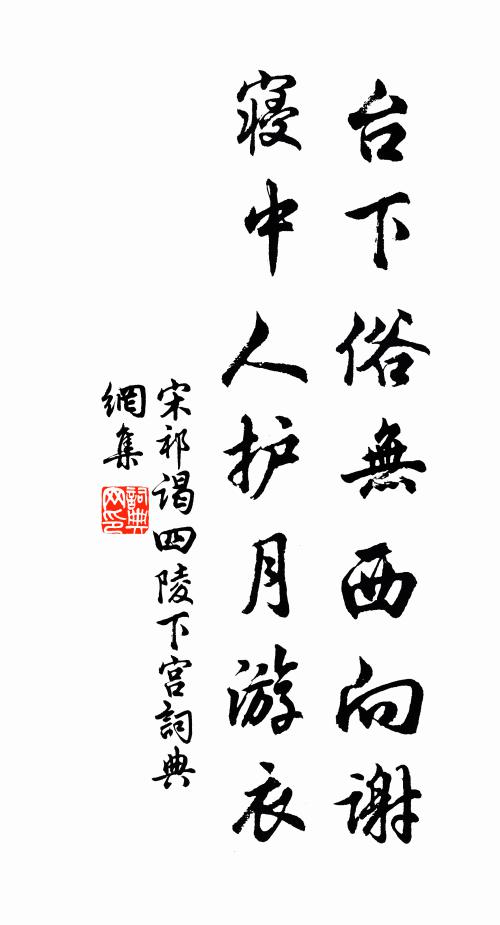 台下俗無西向谢
寝中人护月游衣
宋祁谒四陵下宫詞典
網集
詞典
网印